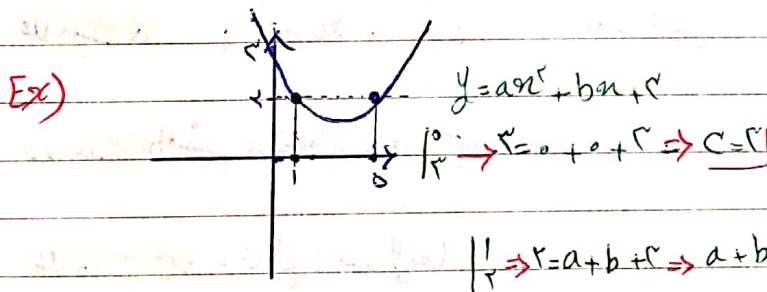 Ex)
۳
۲
۱ ۵
y=ax²+bx+۳
|۰ ۳ → ۳=۰+۰+۳ ⇒ C=۳
|۱ ۲ ⇒ ۲=a+b+۳ ⇒ a+b